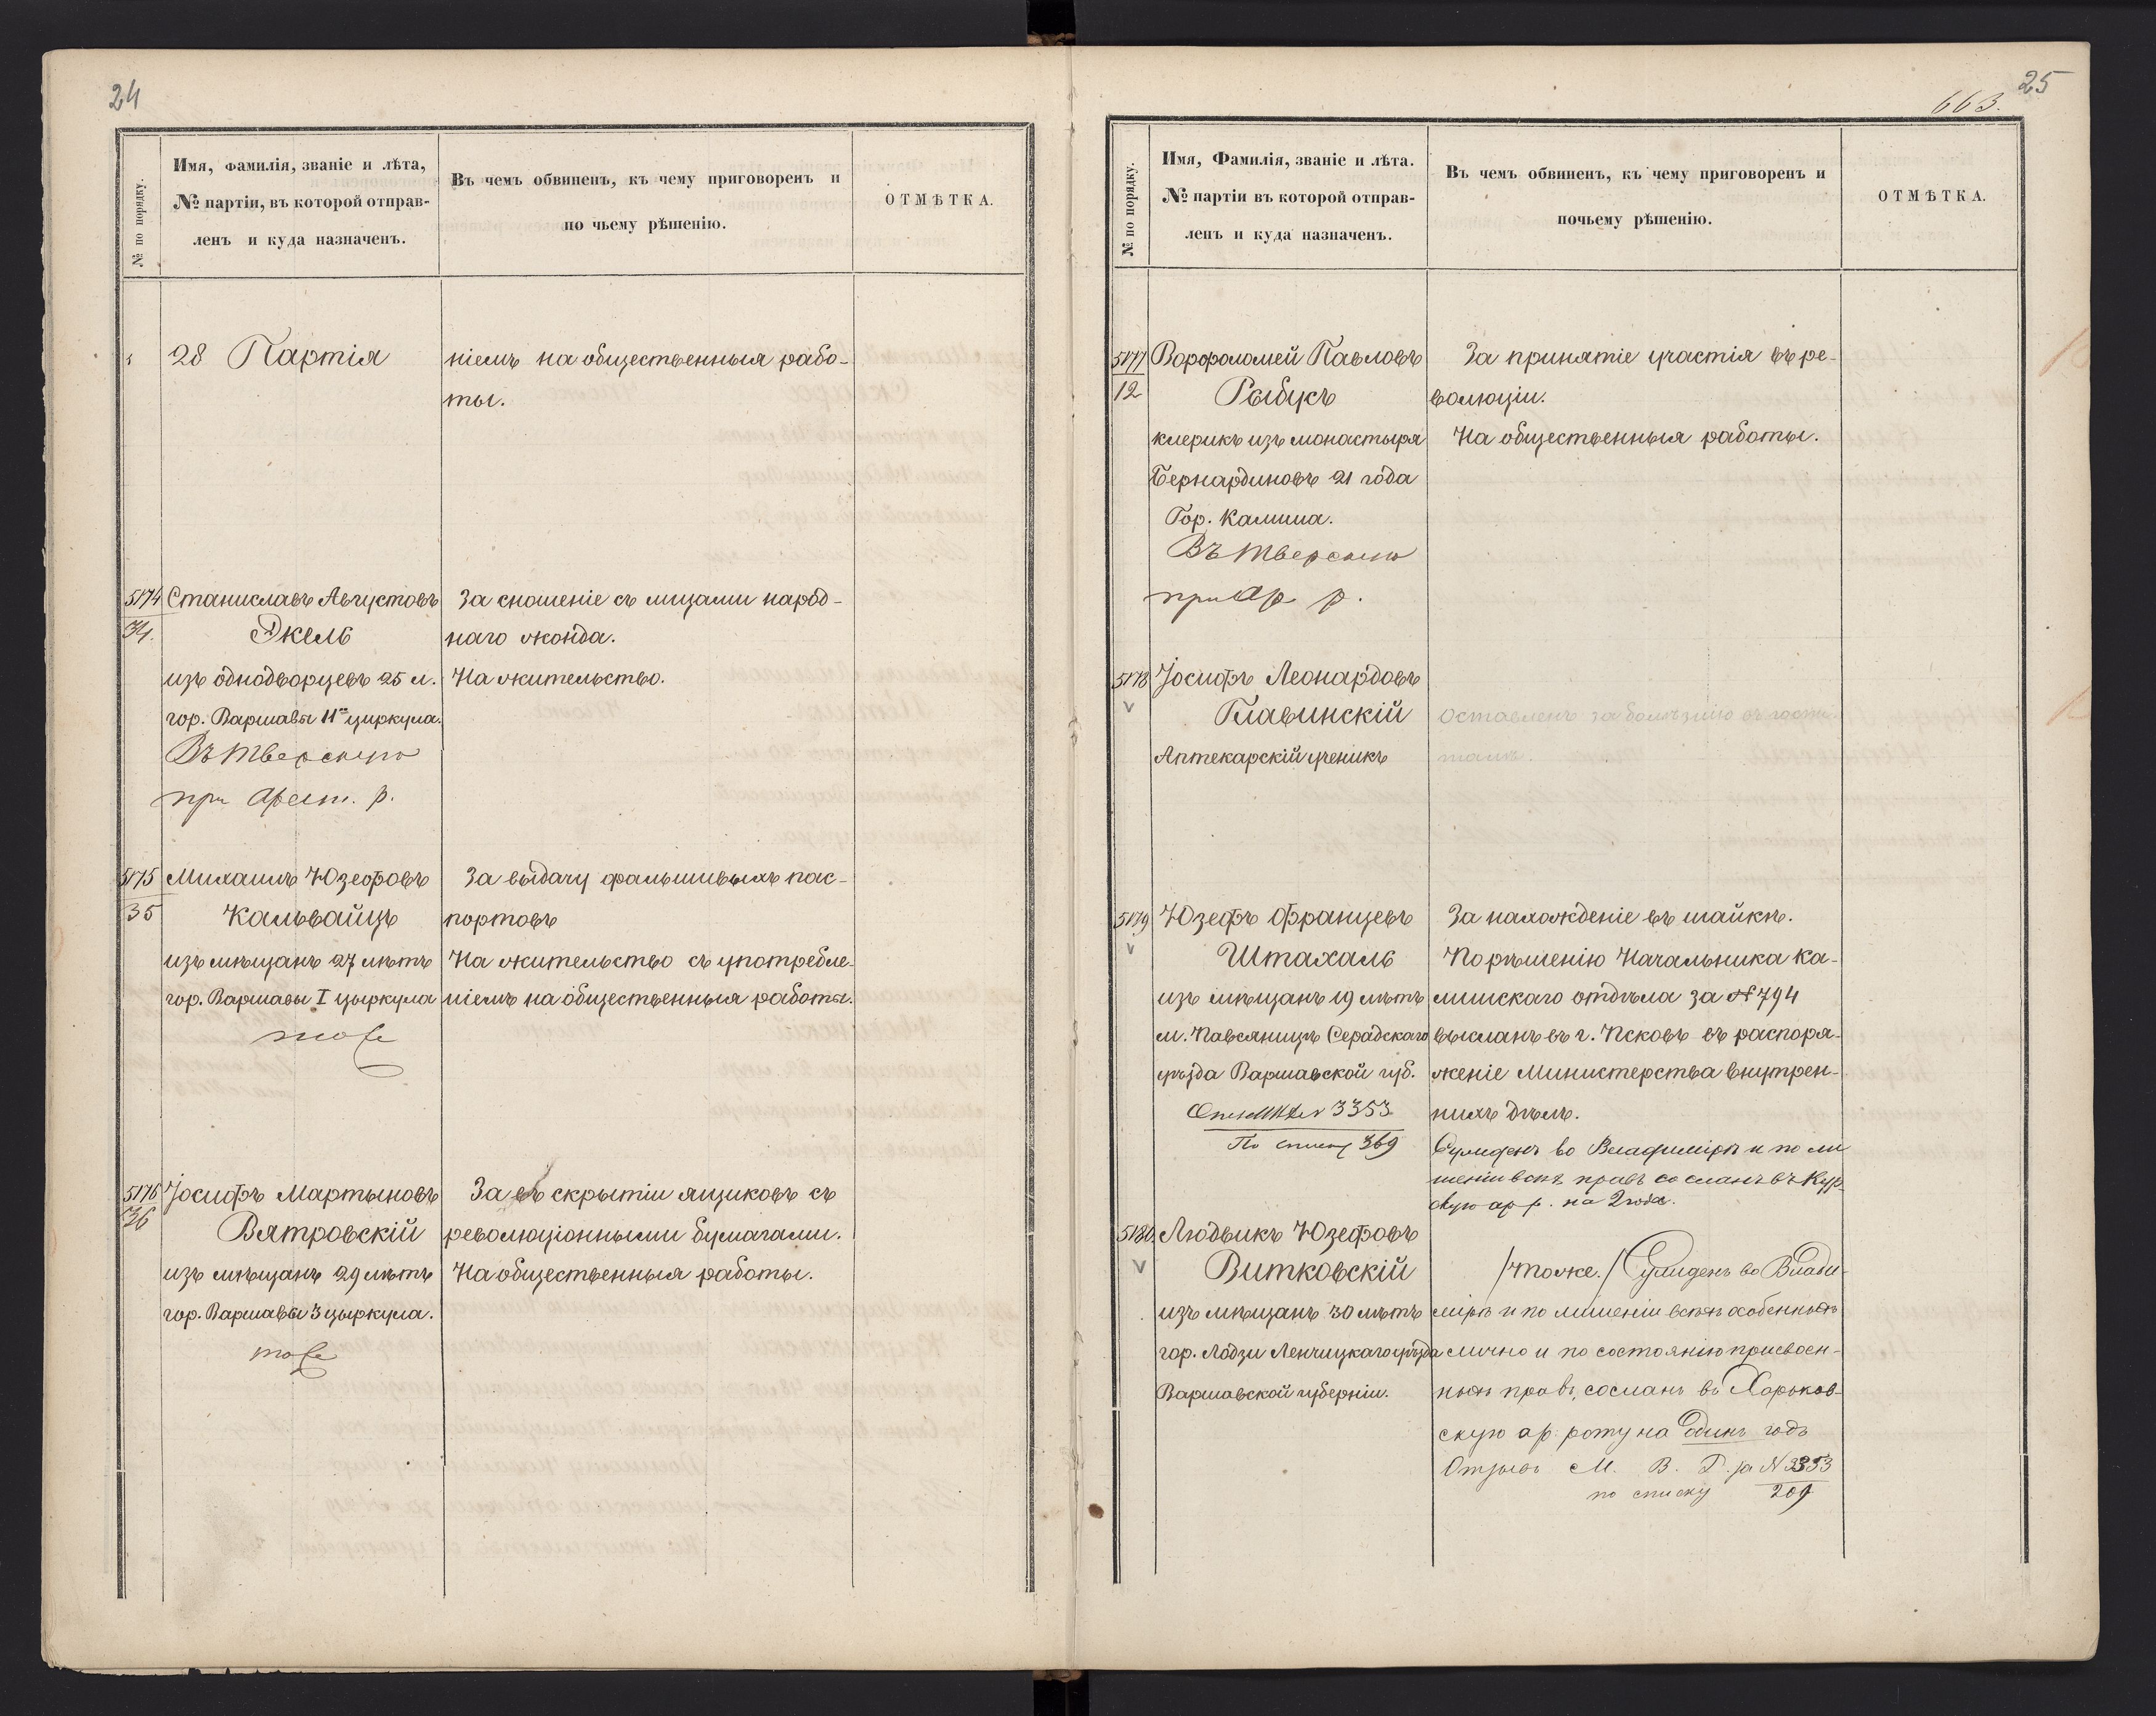 24
№ по порядку.
Имя, фамилія, званіе и лѣта,
№ партіи, въ которой отправ-
ленъ и куда назначенъ.
Въ чемъ обвиненъ, къ чему приговоренъ и
по чьему рѣшенію.
ОТМѢТКА.
28 Партія
ніемъ на общественныя рабо-
ты.
5174
34.
Станиславъ Августовъ
Экель
изъ однодворцевъ 25 л.
гор. Варшавы 11го циркула.
Въ Тверскую
при Арест. р.
За сношеніе съ лицами народ-
наго жонда.
На жительство.
5175
35
Михаилъ Юзефовъ
Кальвайцъ
изъ мѣщанъ 27 лѣтъ
гор. Варшавы I цыркула
тоже
За выдачу фальшивыхъ пас-
портовъ
На жительство съ употребле-
ніемъ на общественныя работы.
5176
36
Іосифъ Мартыновъ
Вятровскій
изъ мѣщанъ 29 лѣтъ
гор. Варшавы 3 цыркула.
тоже
За въ скрытіи ящиковъ съ
революціонными бумагами.
На общественныя работы.
25
663.
№ по порядку.
Имя, Фамилія, званіе и лѣта.
№ партіи въ которой отправ-
ленъ и куда назначенъ.
Въ чемъ обвиненъ, къ чему приговоренъ и
почьему рѣшенію.
ОТМѢТКА.
5177
12
Ворфоломей Павловъ
Рыбукъ
клерикъ изъ монастыря
Бернардиновъ 21 года
Гор. Калиша.
Въ Тверскую
при Ар. р.
За принятіе участія въ ре-
волюціи.
На общественныя работы.
5178
v
Іосифъ Леонардовъ
Главинскій
Аптекарскій ученикъ
Оставленъ за болѣзнію въ госпи-
талѣ.
5179
v
Юзефъ Францевъ
Штахаль
изъ мѣщанъ 19 лѣтъ
м. Павсяницъ Серадскаго
уѣзда Варшавской губ.
3353
По списку 369
За нахожденіе въ шайкѣ.
По рѣшенію Начальника Ка-
лишскаго отдѣла за № 794
высланъ въ г. Псковъ въ распоря-
женіе Министерства внутрен-
нихъ дѣлъ.
Сужденъ во Владимірѣ и по ли
шеніи всѣхъ правъ сосланъ въ Кур
скую ар р. на 2 года.
5180.
v
Людвикъ Юзефовъ
Витковскій
изъ мѣщанъ 30 лѣтъ
гор. Лодзи Ленчицкаго уѣзда
Варшавской губерніи.
/тоже./ Сужденъ во Влади-
мірѣ и по лишеніи всѣхъ особенныхъ
лично и по состоянію присвоен-
ныхъ правъ, сосланъ въ Харьков-
скую ар. роту на одинъ годъ
Отзывъ М. В. Д. за № 3353
по списку 209